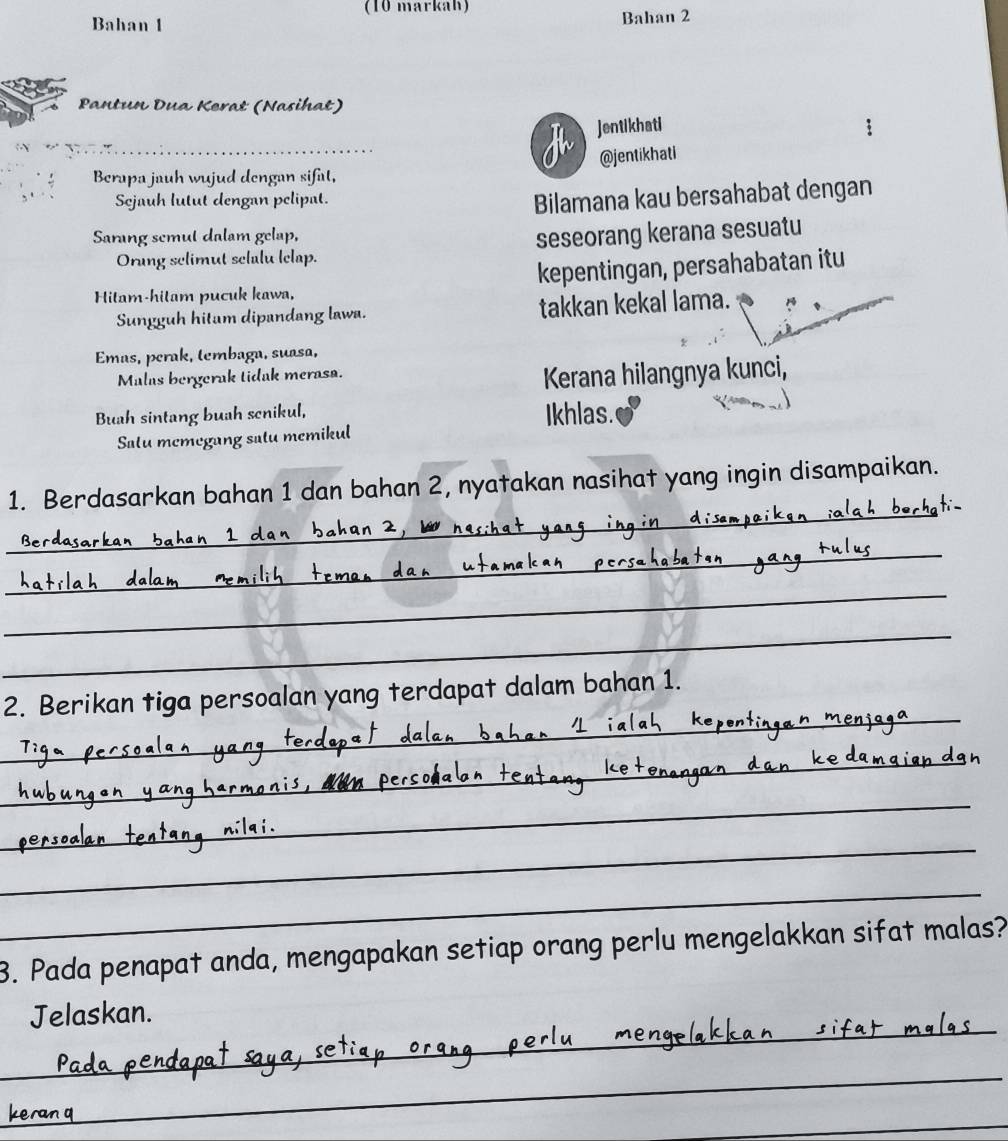 (10 markah)
Bahan 1
Bahan 2
Pantun Dua Kerat (Nasihat)
Berapa jauh wujud dengan sifat,
Sejauh lutut dengan pelipat.
Sarang semut dalam gelap,
Orang selimut selalu lelap.
Hitam-hitam pucuk kawa,
Sungguh hitam dipandang lawa.
Emas, perak, tembaga, suasa,
Malas bergerak tidak merasa.
Buah sintang buah senikut,
Satu memegang satu memikul
Jh
Jentikhati
@jentikhati
Bilamana kau bersahabat dengan
seseorang kerana sesuatu
kepentingan, persahabatan itu
takkan kekal lama.
Kerana hilangnya kunci,
Ikhlas.
1. Berdasarkan bahan 1 dan bahan 2, nyatakan nasihat yang ingin disampaikan.
Berdasarkan bahan 1 dan bahan 2, nasihat yang ingin disampaikan ialah berhati-
hatilah dalam memilih teman dan utamakan persahabatan yang tulus
2. Berikan tiga persoalan yang terdapat dalam bahan 1.
Tiga persoalan yang terdapat dalan bahan 1 ialah kepentingan menjaga
hubungan yang harmonis, persoalan tentang ketenangan dan kedamaian dan
persoalan tentang nilai.
3. Pada penapat anda, mengapakan setiap orang perlu mengelakkan sifat malas?
Jelaskan.
Pada pendapat saya, setiap orang perlu mengelakkan sifat malas
kerana